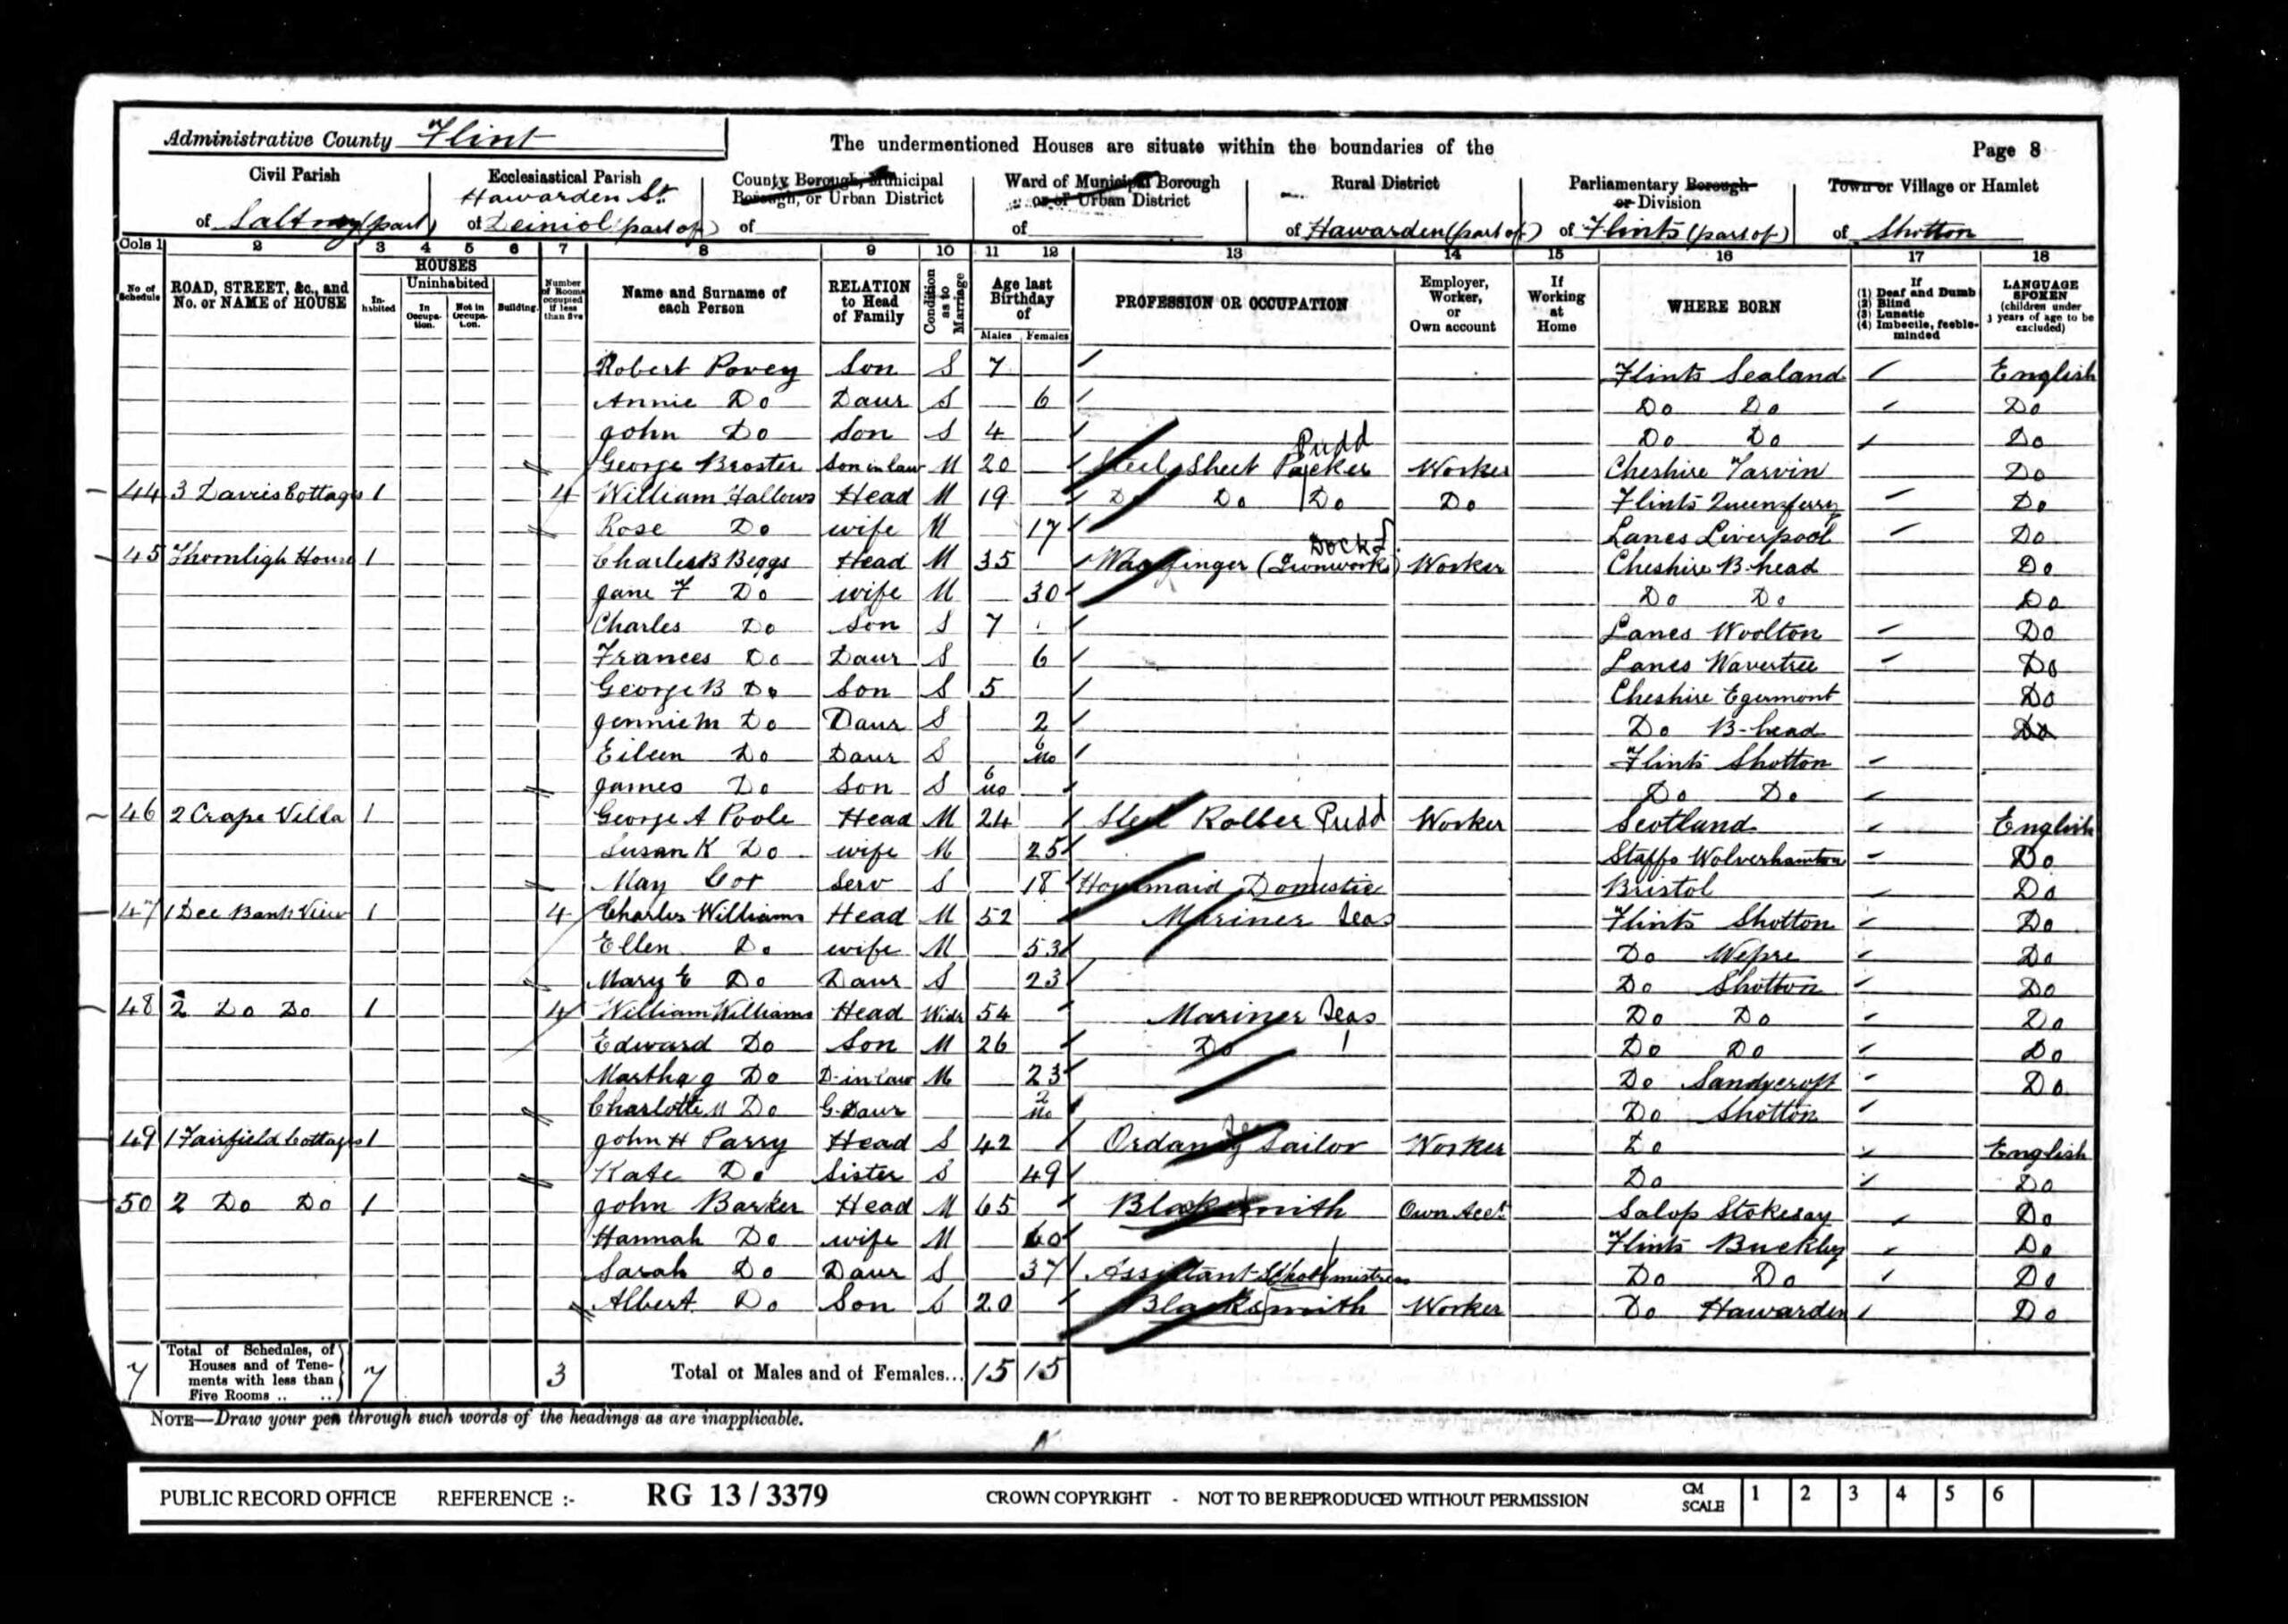 Administrative County Flint
The undermentioned Houses are situate within the boundaries of the
Page 8
Civil Parish
of Saltney (part)
Ecclesiastical Parish
Hawarden St
of Deiniol (part of)
County Borough, Municipal
Borough, or Urban District
of
Ward of Municipal Borough
or of Urban District
of
Rural District
of Hawarden (part of)
Parliamentary Borough
or Division
of Flints (part of)
Town or Village or Hamlet
of Shotton
Cols 1 2 3 4 5 6 7 8 9 10 11 12 13 14 15 16 17 18
No of Schedule
ROAD, STREET, &c., and No. or NAME of HOUSE
HOUSES
Inhabited
Uninhabited
In Occupation.
Not in Occupation.
Building.
Number of Rooms occupied if less than five
Name and Surname of each Person
RELATION to Head of Family
Condition as to Marriage
Age last Birthday of
Males Females
PROFESSION OR OCCUPATION
Employer, Worker, or Own account
If Working at Home
WHERE BORN
If
(1) Deaf and Dumb
(2) Blind
(3) Lunatic
(4) Imbecile, feeble-minded
LANGUAGE SPOKEN
(children under 3 years of age to be excluded)
Robert Povey Son S 7 Flints Sealand English
Annie Do Daur S 6 Do Do Do
John Do Son S 4 Do Do Do
George Broster Son in law M 20 Steel Sheet Packer Pudd Worker Cheshire Tarvin Do
44 3 Davies Cottages 1 4 William Hallows Head M 19 Do Do Do Do Flints Queensferry Do
Rose Do wife M 17 Lancs Liverpool Do
45 Thornligh House 1 Charles B Beggs Head M 35 Wharfinger (Ironworks) Dock Worker Cheshire B-head Do
Jane F Do wife M 30 Do Do Do
Charles Do Son S 7 Lancs Woolton Do
Frances Do Daur S 6 Lancs Wavertree Do
George B Do Son S 5 Cheshire Egermont Do
Jennie M Do Daur S 2 Do B-head Do
Eileen Do Daur S 6 mo Flints Shotton
James Do Son S 6 mo Do Do
46 2 Crape Villa 1 George A Poole Head M 24 Steel Roller Pudd Worker Scotland English
Susan K Do wife M 25 Staffs Wolverhamton Do
May Cor Serv S 18 Housemaid Domestic Bristol Do
47 1 Dee Bank View 1 4 Charles Williams Head M 52 Mariner Seas Flints Shotton Do
Ellen Do wife M 53 Do Wepre Do
Mary E Do Daur S 23 Do Shotton Do
48 2 Do Do 1 4 William Williams Head Widr 54 Mariner Seas Do Do Do
Edward Do Son M 26 Do Do Do Do
Martha J Do D-in law M 23 Do Sandycroft Do
Charlotte M Do G-Daur 2 mo Do Shotton
49 1 Fairfield Cottages 1 John H Parry Head S 42 Ordanry Sailor Worker Do English
Kate Do Sister S 49 Do Do
50 2 Do Do 1 John Barker Head M 65 Blacksmith Own Acct Salop Stokesay Do
Hannah Do wife M 60 Flints Buckley Do
Sarah Do Daur S 37 Assistant Schoolmistress Do Do Do
Albert Do Son S 20 Blacksmith Worker Do Hawarden Do
7 Total of Schedules, of Houses and of Tenements with less than Five Rooms .. .. 7 3 Total of Males and of Females... 15 15
NOTE—Draw your pen through such words of the headings as are inapplicable.
PUBLIC RECORD OFFICE REFERENCE :- RG 13 / 3379 CROWN COPYRIGHT - NOT TO BE REPRODUCED WITHOUT PERMISSION CM SCALE 1 2 3 4 5 6